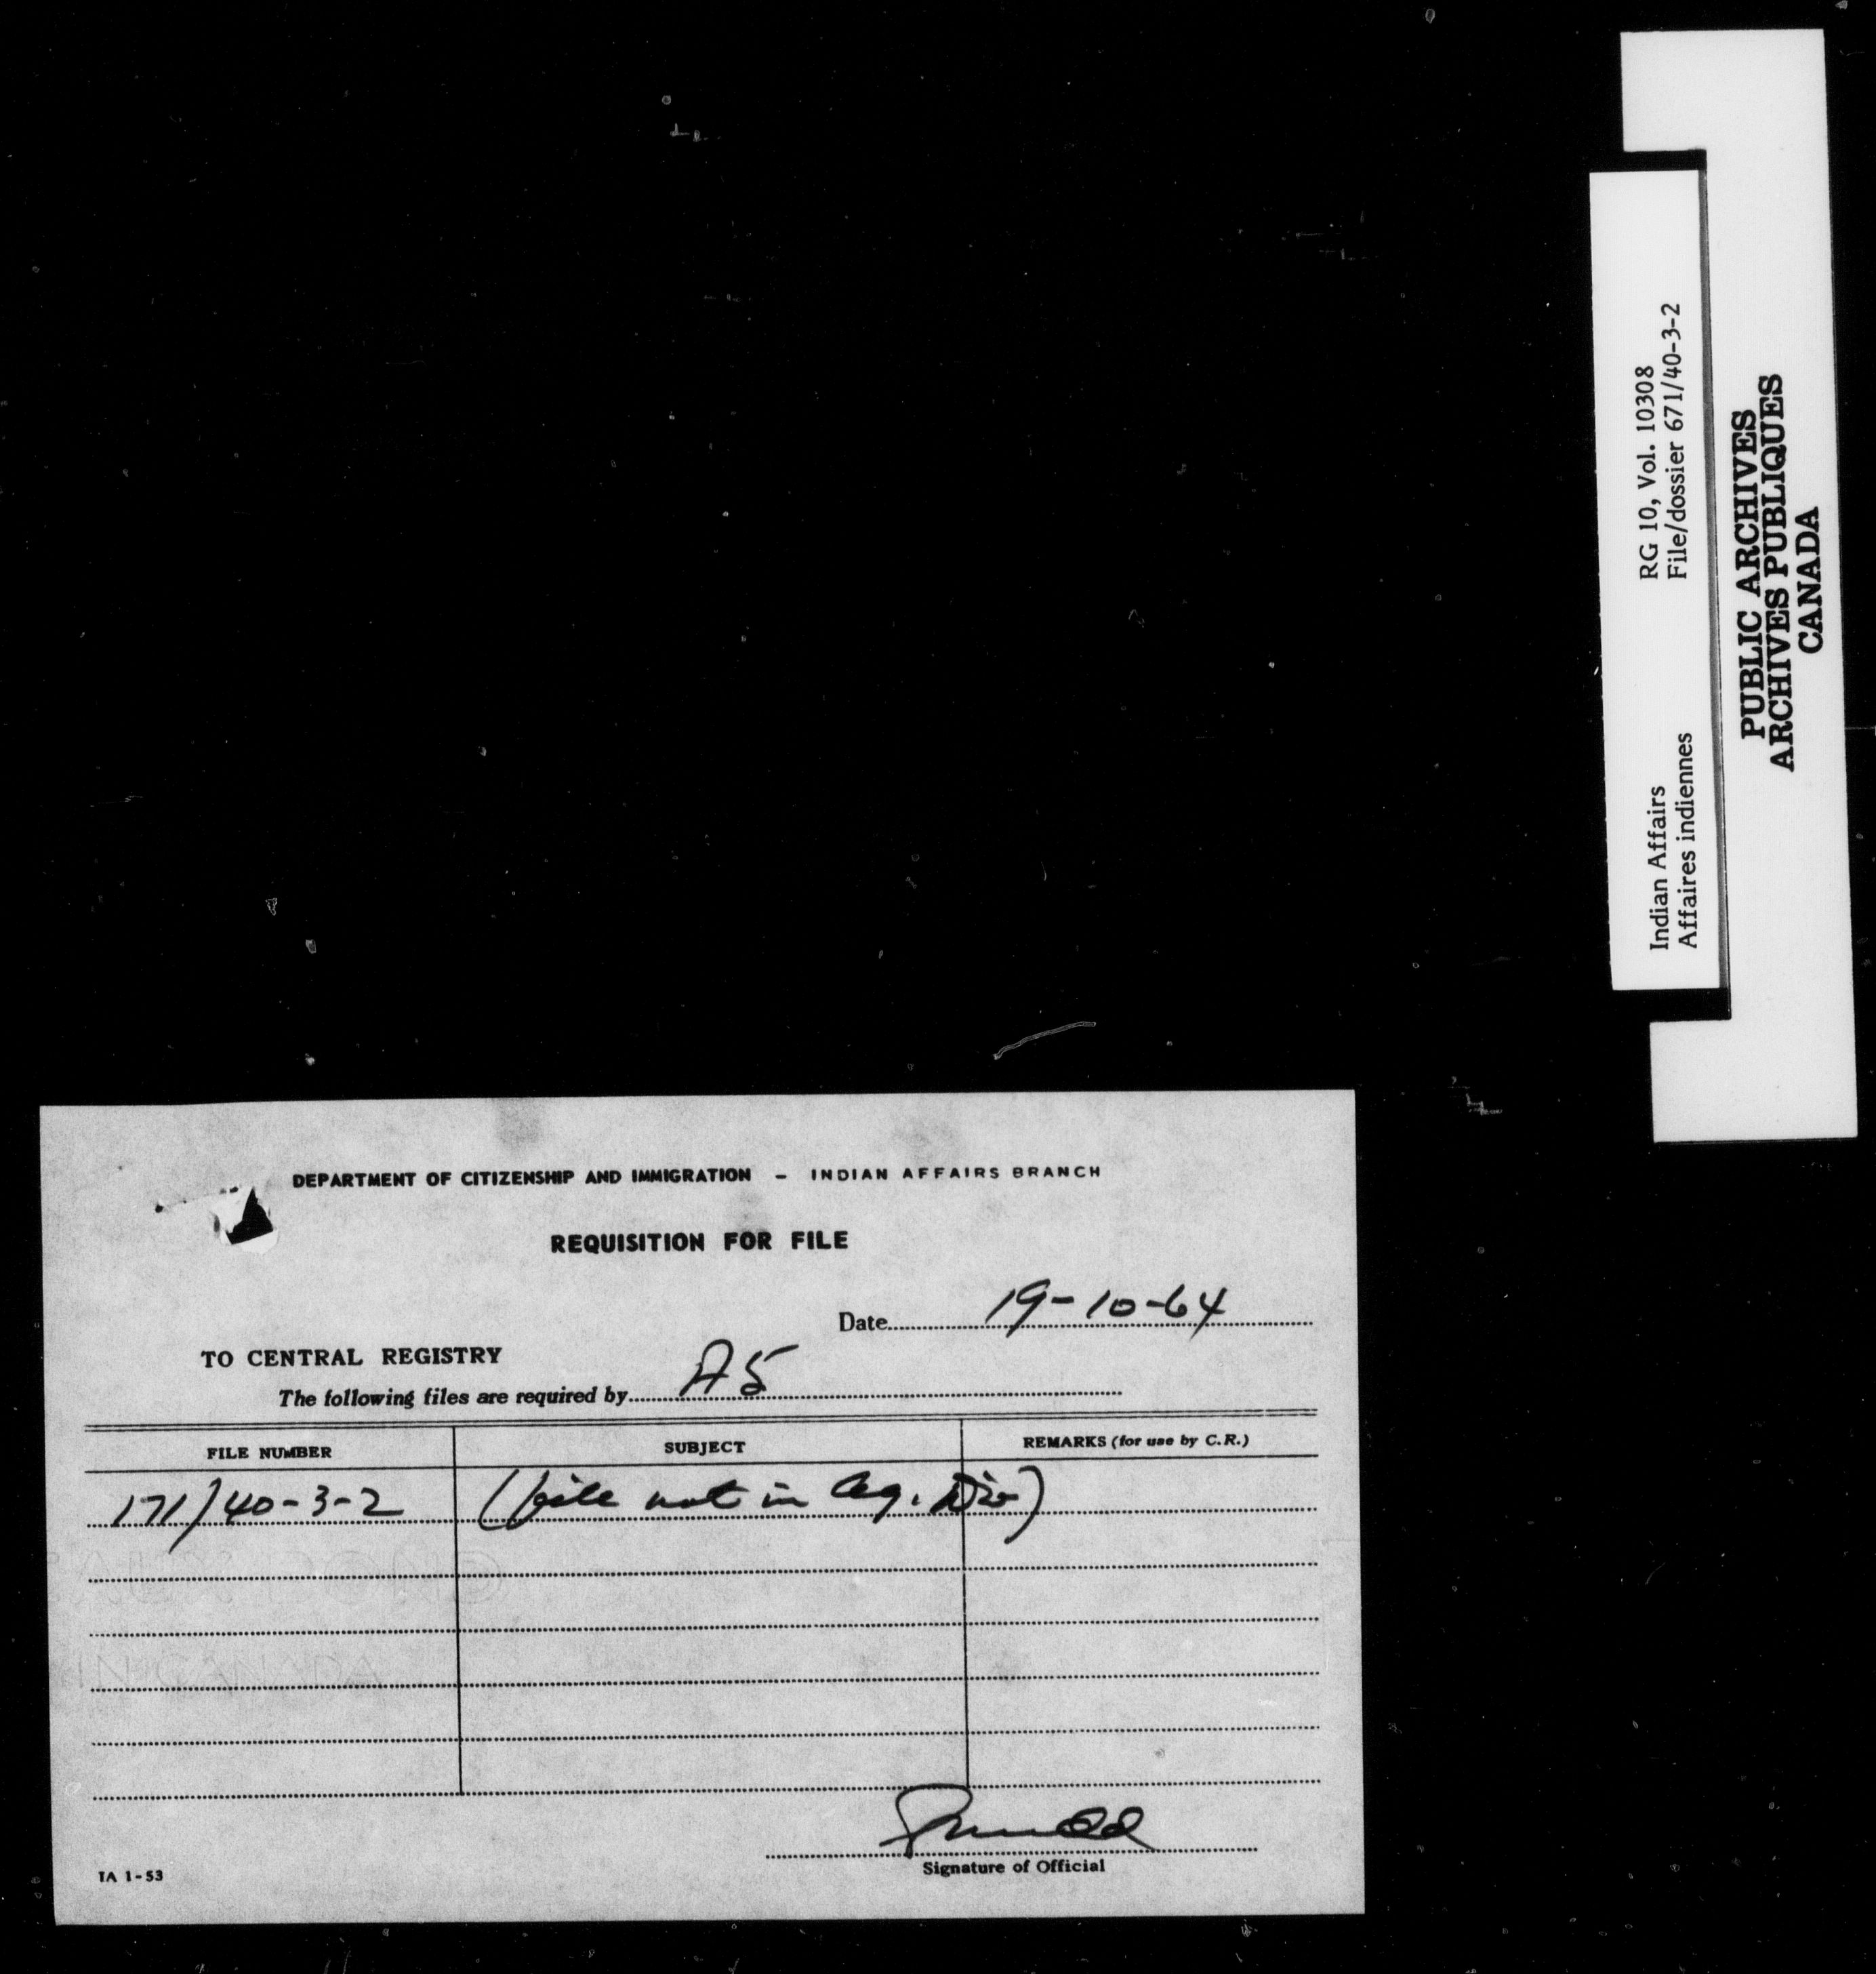 DEPARTMENT OF CITIZENSHIP AND IMMIGRATION - INDIAN AFFAIRS BRANCH
REQUISITION FOR FILE
Date 19-10-64
TO CENTRAL REGISTRY
The following files are required by A5
FILE NUMBER SUBJECT REMARKS (for use by C.R.)
171/40-3-2 (file not in Ag. Div)
Signature of Official
IA 1-53
Indian Affairs RG 10, Vol. 10308
Affaires indiennes File/dossier 671/40-3-2
PUBLIC ARCHIVES
ARCHIVES PUBLIQUES
CANADA